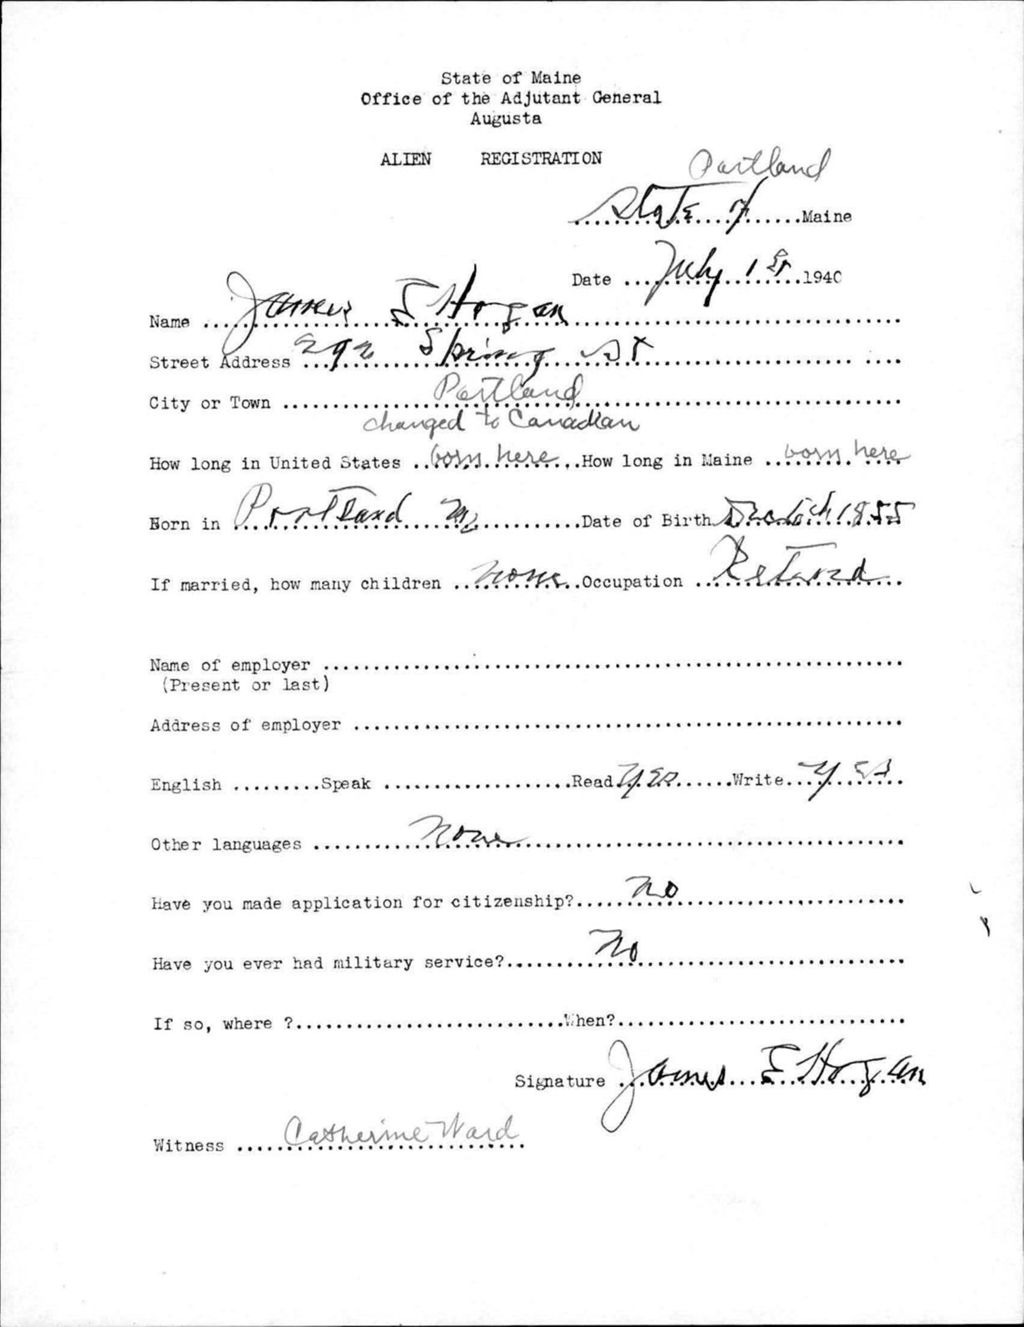 State of Maine
Office of the Adjutant General
Augusta
ALIEN REGISTRATION
Portland
State of Maine
Date July 1st 1940
Name James E Hogan
Street Address 292 Spring St
City or Town Portland
changed to Canadian
How long in United States born here How long in Maine born here
Born in Portland Me Date of Birth Dec 6th 1855
If married, how many children none Occupation Retired
Name of employer
(Present or last)
Address of employer
English Speak Read Yes Write Yes
Other languages None
Have you made application for citizenship? No
Have you ever had military service? No
If so, where ? When?
Signature James E Hogan
Witness Catherine Ward